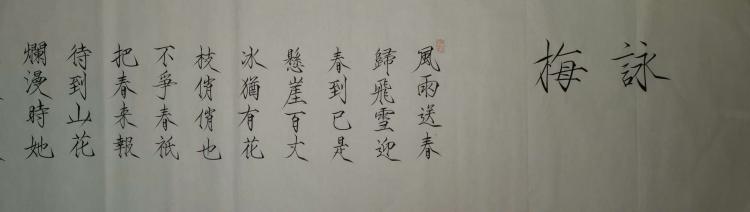 詠梅
風雨送春
歸飛雪迎
春到已是
懸崖百丈
冰猶有花
枝俏俏也
不爭春祇
把春来報
待到山花
爛漫時她